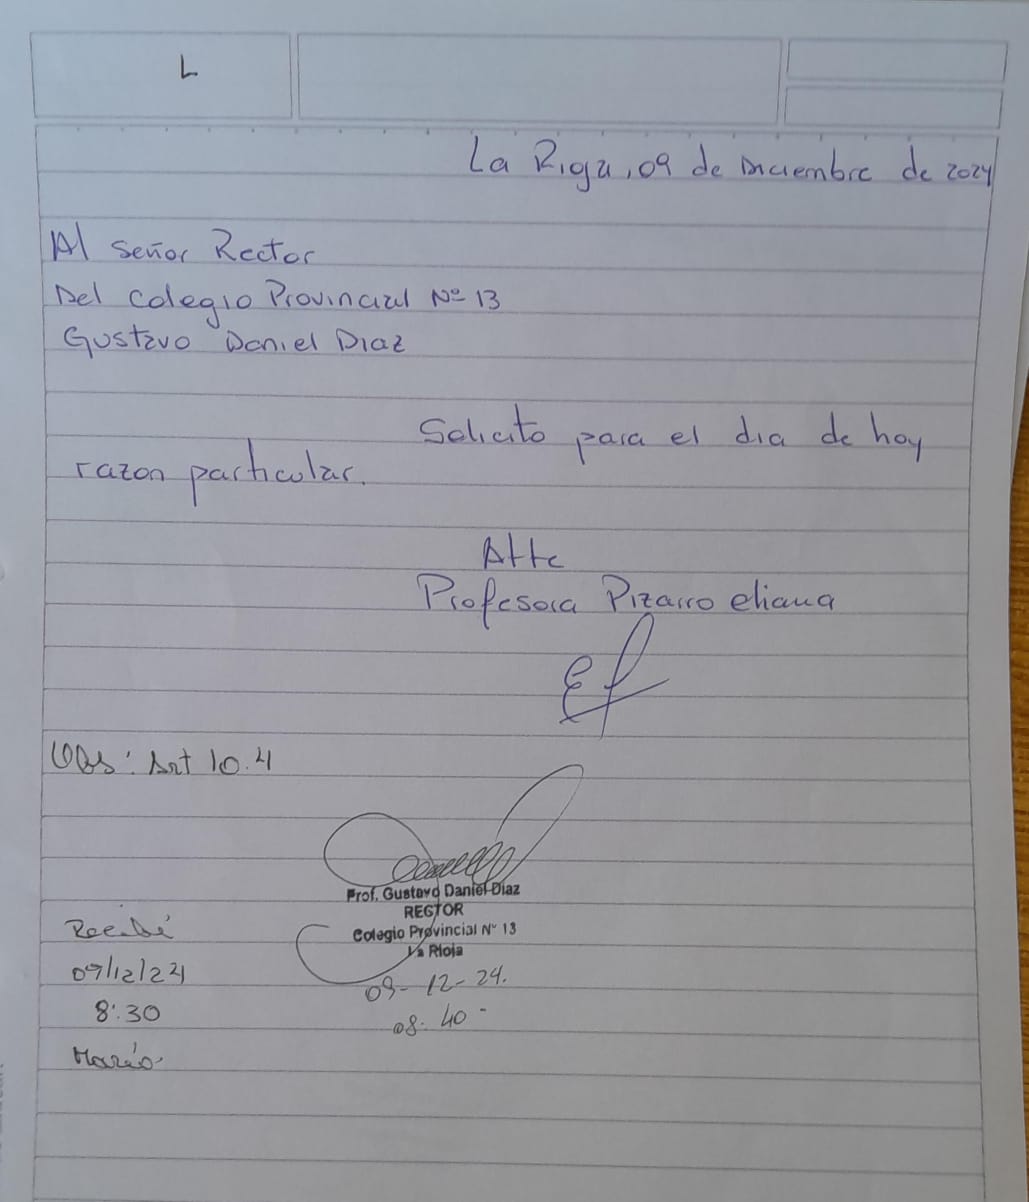 L
La Rioja, 09 de Diciembre de 2024
Al señor Rector
Del Colegio Provincial Nº 13
Gustavo Daniel Diaz
Solicito para el dia de hoy
razon particular.
Atte
Profesora Pizarro eliana
Obs: Art 10.4
Prof. Gustavo Daniel Diaz
RECTOR
Colegio Provincial Nº 13
La Rioja
09-12-24.
08:40-
Recibí
09/12/24
8:30
Mario.